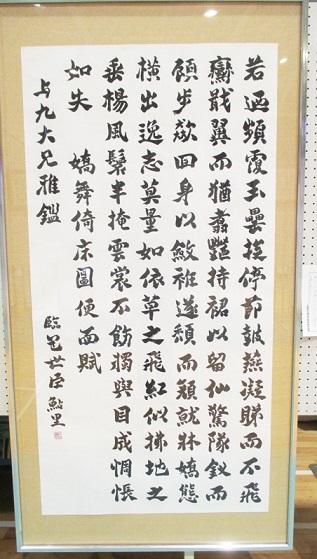 若迺頻霞玉罍投停節鼓燕凝睇而不飛
鸞戢翼而猶翥豔持裾以留仙驚隊釵而
顧步欻回身以斂袵遂頽而頽就牀嬌態
橫出逸志莫量如依草之飛紅似拂地之
垂楊風鬟半掩雲裳不飭獨與目成惆悵
如失 嬌舞倚床圖便面賦
与九大兄雅鑑 臨包世臣 鮎里